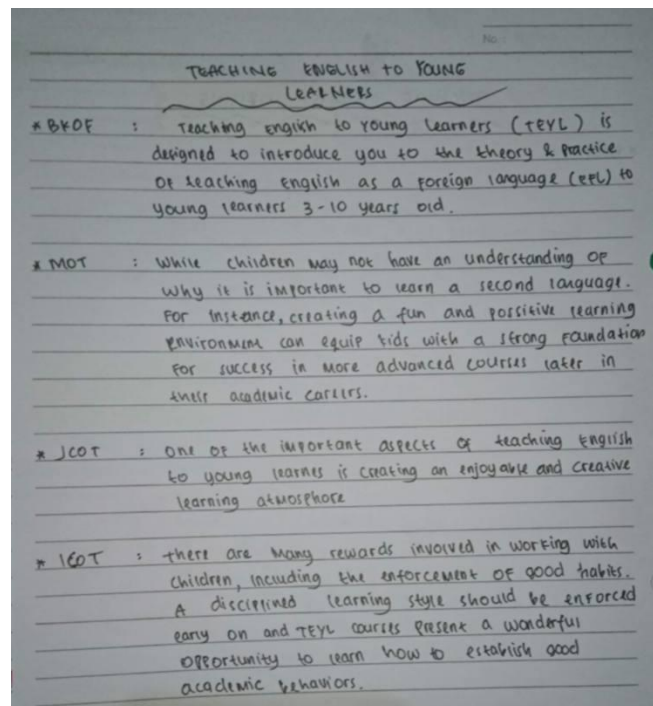 No :
TEACHING ENGLISH TO YOUNG
LEARNERS
* BKOF : Teaching English to Young Learners (TEYL) is
designed to introduce you to the theory & Practice
Of teaching English as a foreign language (EFL) to
young learners 3-10 years old.
* MOT : While children may not have an understanding of
why it is important to learn a second language.
For instance, creating a fun and possitive learning
environment can equip kids with a strong foundation
for success in more advanced courses later in
their academic careers.
* JCOT : One of the important aspects of teaching English
to young learnes is creating an enjoyable and creative
learning atmosphore
* IEOT : there are many rewards involved in working with
children, including the enforcement of good habits.
A disciplined learning style should be enforced
early on and TEYL courses present a wonderful
opportunity to learn how to establish good
academic behaviors.